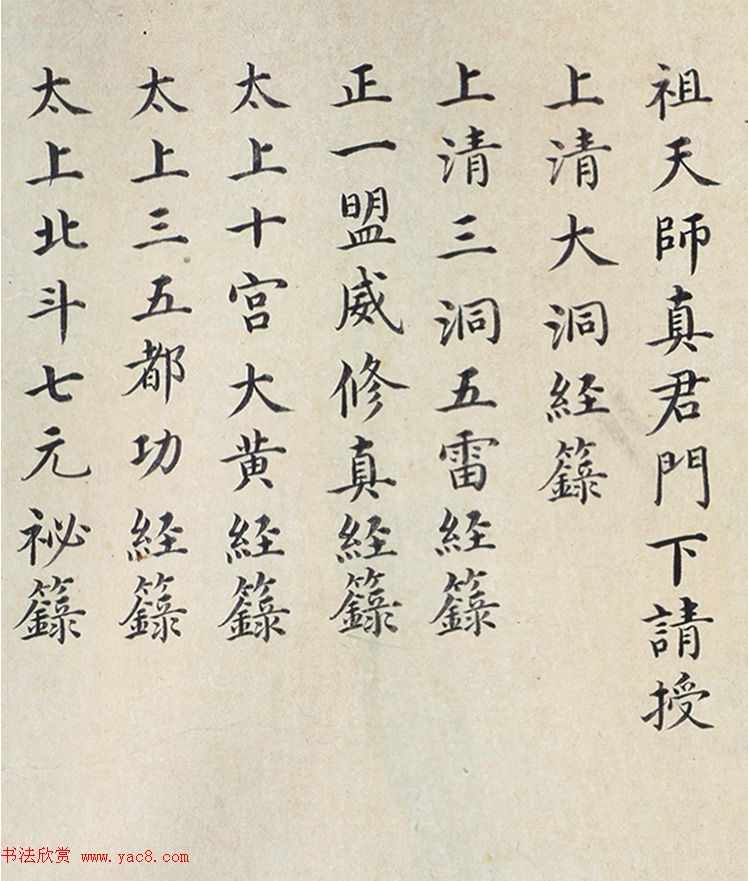 祖天師真君門下請授
上清大洞経籙
上清三洞五雷経籙
正一盟威修真経籙
太上十宫大黄経籙
太上三五都功経籙
太上北斗七元祕籙
书法欣赏 www.yac8.com